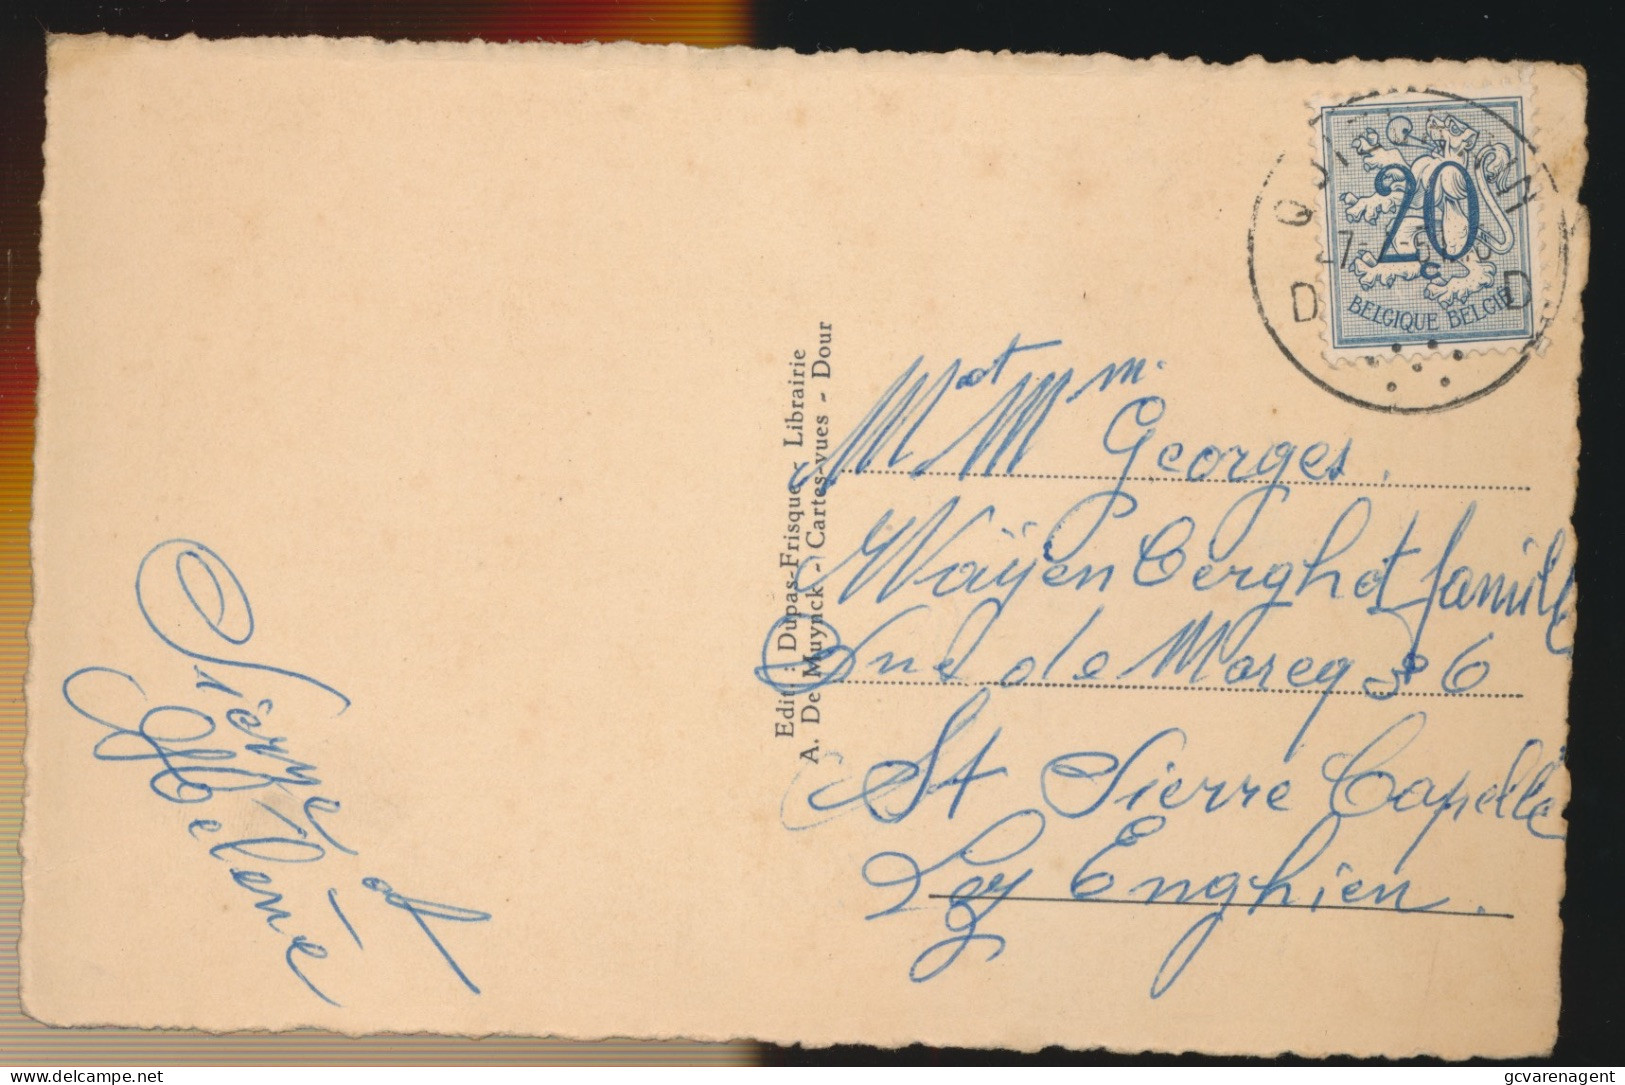 QUIEVRAIN
D D
20
c
BELGIQUE BELGIE
Edit. : Dupas-Frisque - Librairie
A. De Muynck - Cartes-vues - Dour
M et Mm.
Georges.
et famille
Rue de Marcq 36
St Pierre Capelle
Lez Enghien.
et
Hélène
www.delcampe.net
gcvarenagent